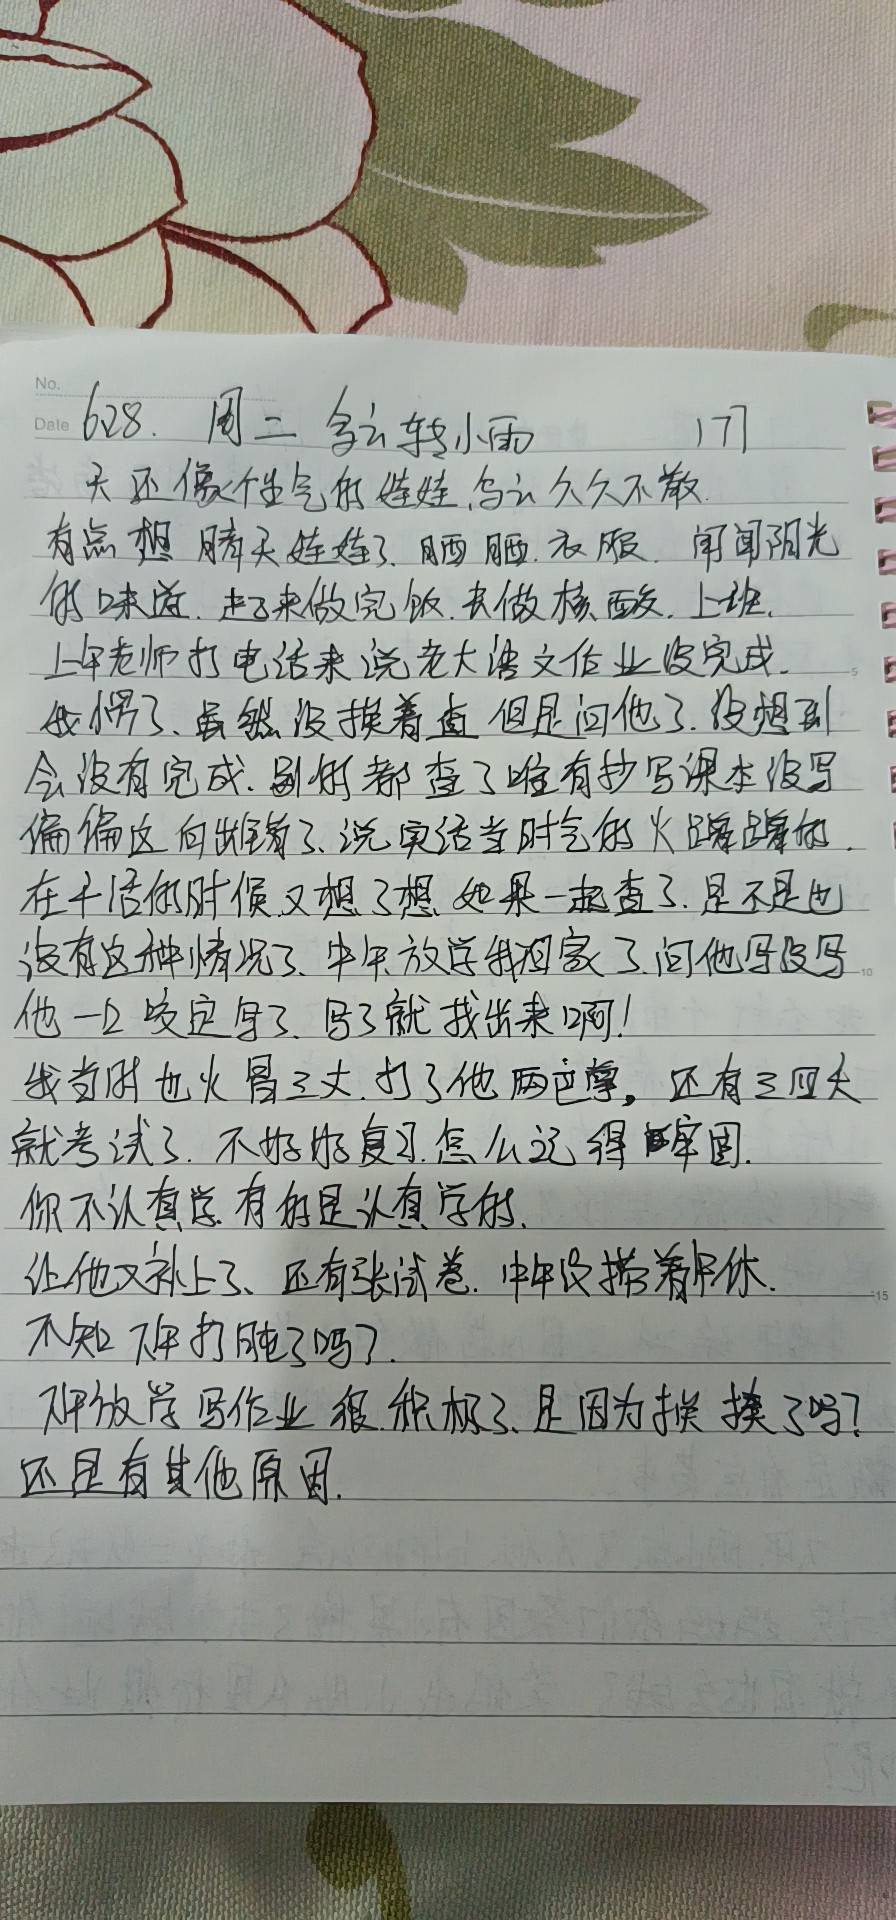 No.
Date 628. 周二 多云转小雨 177
天还像个生气的娃娃,乌云久久不散.
有点想晴天娃娃了、晒晒.衣服.闻闻阳光
的味道.起了来做完饭.去做核酸.上班.
上午老师打电话来说老大语文作业没完成.
我愣了、虽然没挨着查但是问他了.没想到
会没有完成、别的都查了唯有抄写课本没写
偏偏这向出错了、说实话当时气的火蹿蹿的.
在干活的时候又想了想 如果一起查了.是不是也
没有这种情况了、中午放学我回家了.问他写没写
他一口咬定写了、写了就找出来啊!
我当时也火冒三丈.打了他两巴掌。还有三四天
就考试了.不好好复习.怎么记得牢固.
你不认真学.有的是认真学的.
让他又补上了、还有张试卷.中午没捞着午休.
不知下午打盹了吗?.
下午放学写作业很积极了、是因为挨揍了吗?
还是有其他原因.
5
10
15